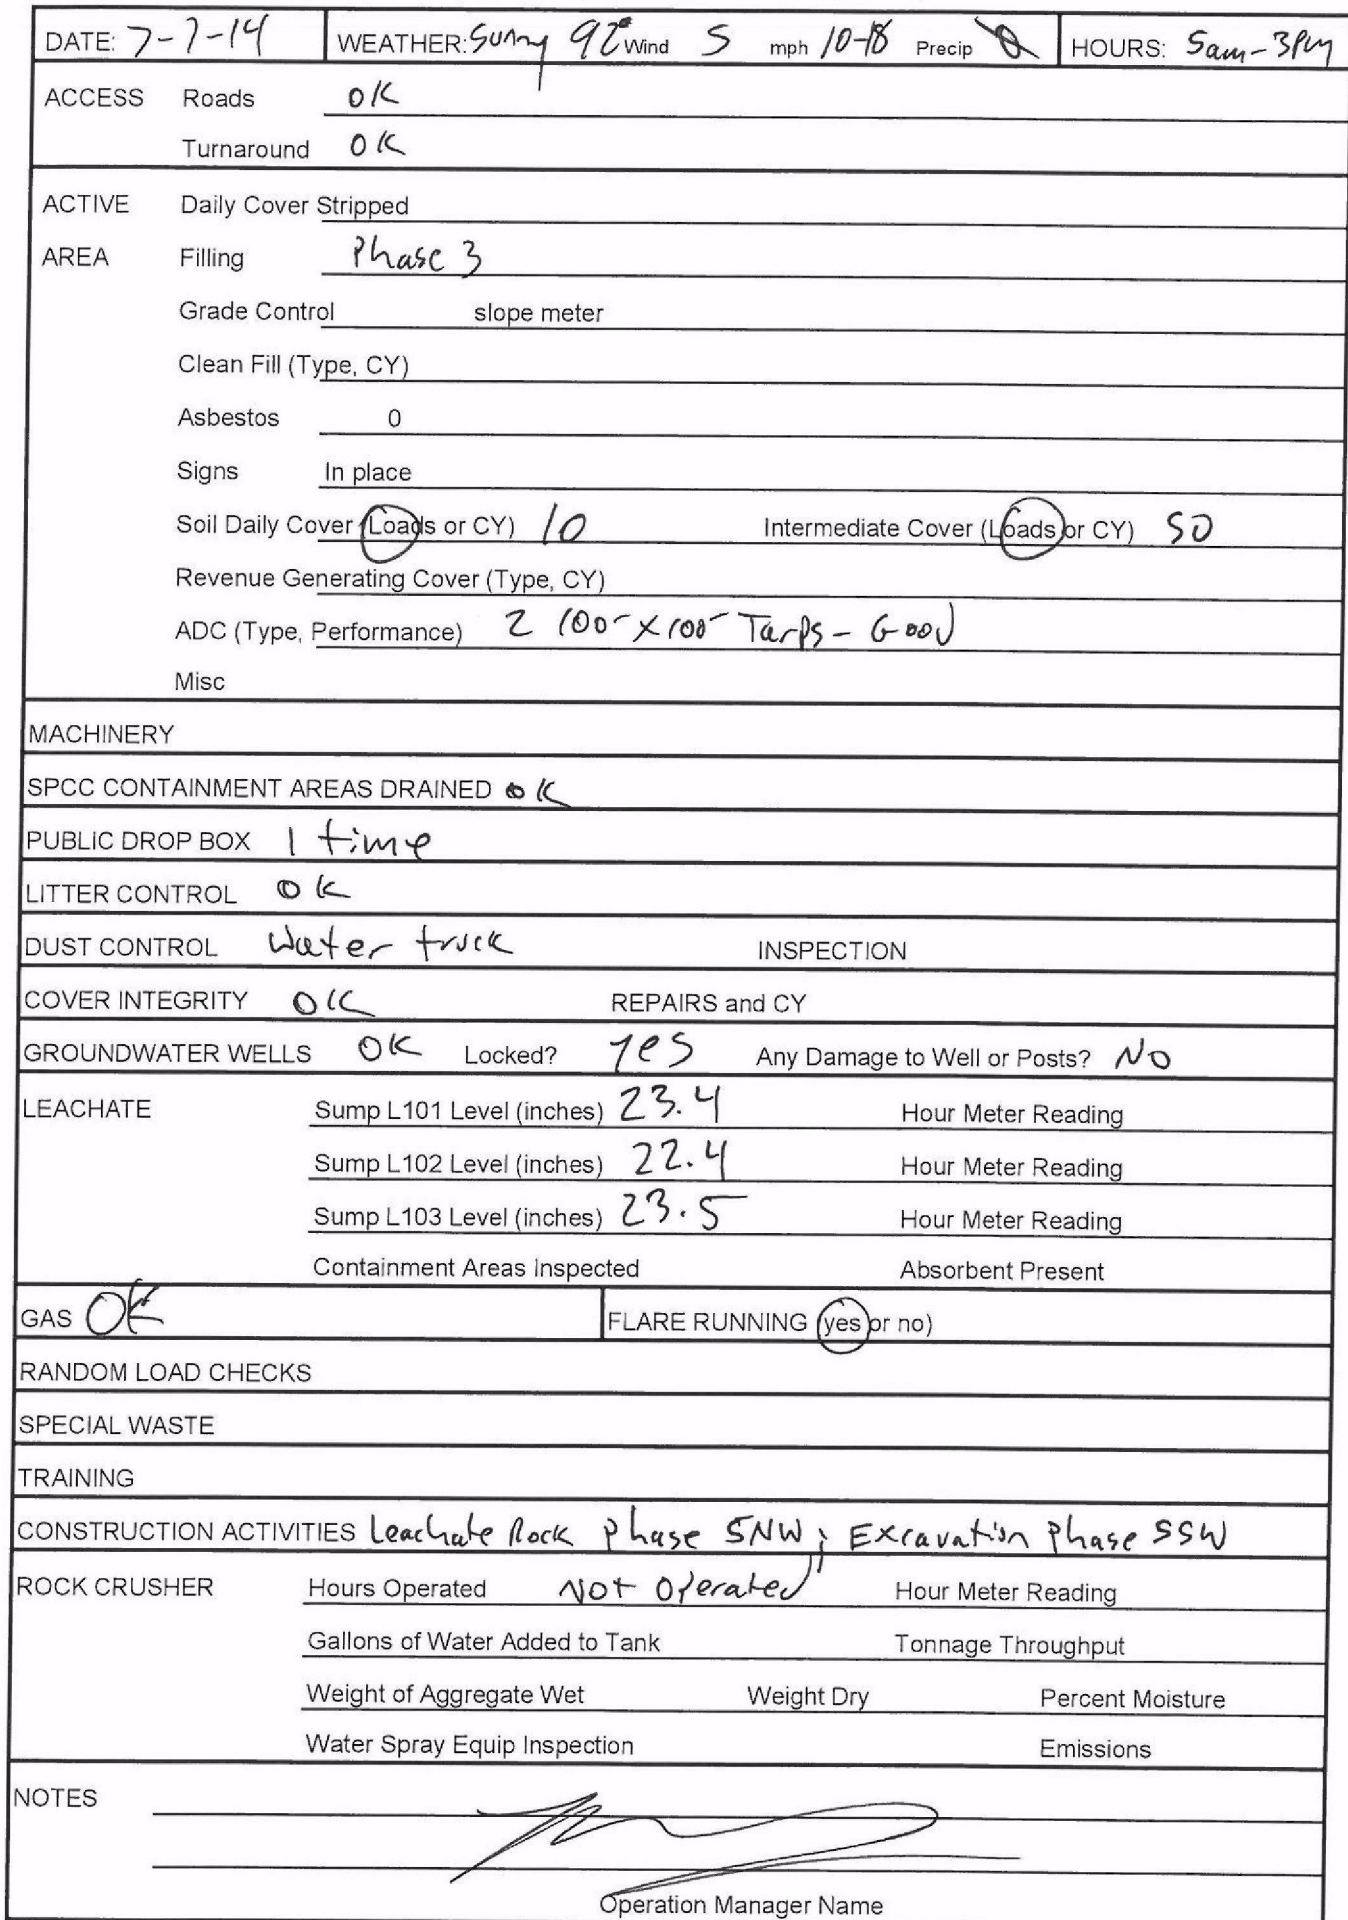 DATE: 7-7-14 WEATHER: Sunny 92° Wind S mph 10-18 Precip 0 HOURS: 5am-3pm
ACCESS Roads OK
Turnaround OK
ACTIVE Daily Cover Stripped
AREA Filling Phase 3
Grade Control slope meter
Clean Fill (Type, CY)
Asbestos 0
Signs In place
Soil Daily Cover (Loads or CY) 10 Intermediate Cover (Loads or CY) 50
Revenue Generating Cover (Type, CY)
ADC (Type, Performance) 2 100' x 100' Tarps - Good
Misc
MACHINERY
SPCC CONTAINMENT AREAS DRAINED OK
PUBLIC DROP BOX 1 time
LITTER CONTROL OK
DUST CONTROL Water truck INSPECTION
COVER INTEGRITY OK REPAIRS and CY
GROUNDWATER WELLS OK Locked? Yes Any Damage to Well or Posts? NO
LEACHATE Sump L101 Level (inches) 23.4 Hour Meter Reading
Sump L102 Level (inches) 22.4 Hour Meter Reading
Sump L103 Level (inches) 23.5 Hour Meter Reading
Containment Areas Inspected Absorbent Present
GAS OK FLARE RUNNING (yes or no)
RANDOM LOAD CHECKS
SPECIAL WASTE
TRAINING
CONSTRUCTION ACTIVITIES Leachate Rock Phase 5NW; Excavation Phase 5SW
ROCK CRUSHER Hours Operated Not Operated Hour Meter Reading
Gallons of Water Added to Tank Tonnage Throughput
Weight of Aggregate Wet Weight Dry Percent Moisture
Water Spray Equip Inspection Emissions
NOTES
Operation Manager Name